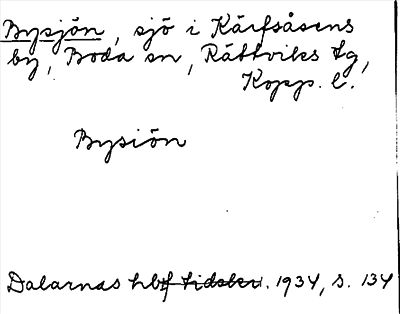 Bysjön, sjö i Kärfsåsens
by, Boda sn, Rättviks tg,
Kopp. l.
Bysiön
Dalarnas hbf tidskr. 1934, s. 134